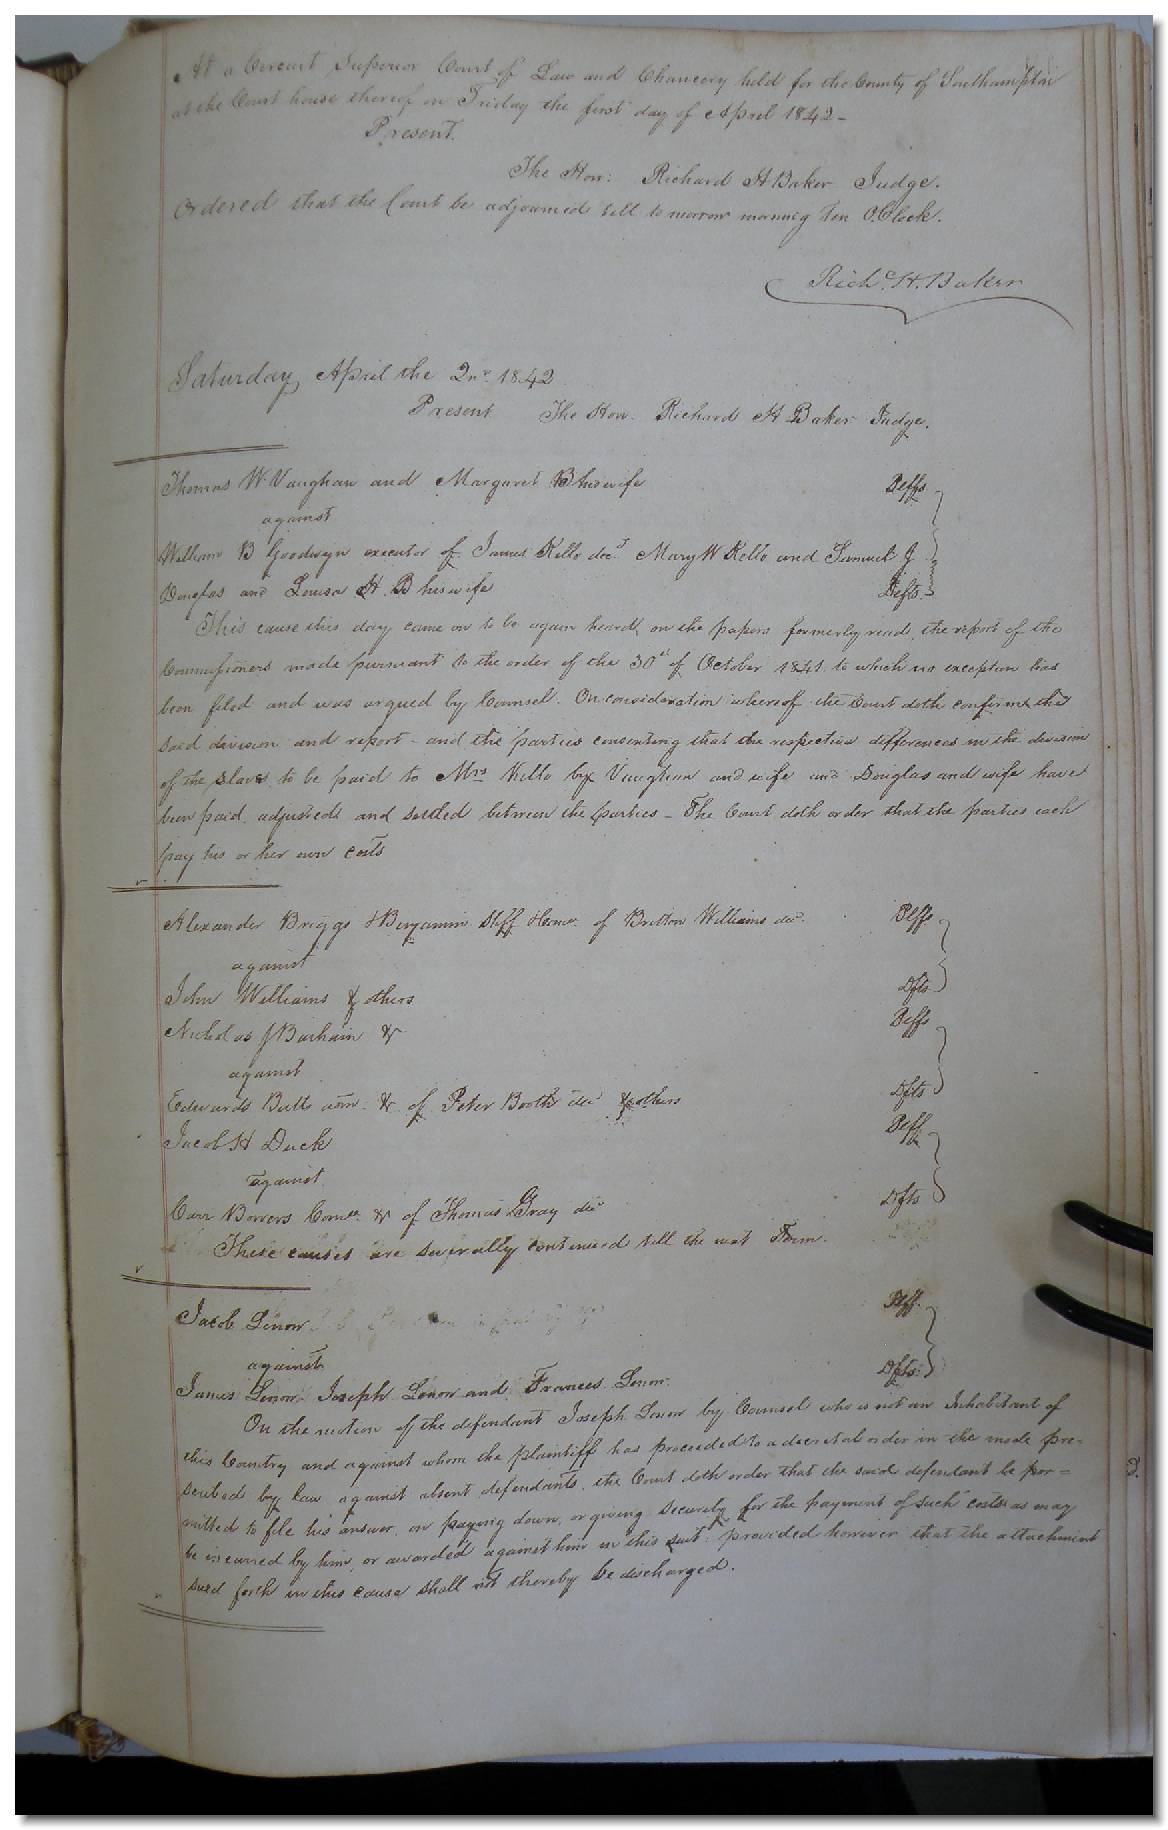 At a Circuit Superior Court of Law and Chancery held for the County of Southampton
at the Court house thereof on Friday the first day of April 1842 -
Present.
The Hon: Richard H Baker Judge.
Ordered that the Court be adjourned till to morrow morning Ten O.Clock.
Richd. H. Baker
Saturday April the 2nd 1842
Present The Hon. Richard H Baker Judge.
Thomas W. Vaughan and Margaret B his wife Plffs
against
William B Goodwyn executor of James Kello decd Mary W Kello and Samuel J
Douglas and Louisa H. B his wife Defts.
This cause this day came on to be again heard, on the papers formerly read, the report of the
Commissioners made pursuant to the order of the 30th of October 1841 to which no exception has
been filed and was argued by Counsel. On consideration whereof the Court doth confirm the
said division and report - and the parties consenting that the respective differences in the division
of the slaves to be paid to Mrs Kello by Vaughan and wife and Douglas and wife have
been paid, adjusted and settled between the parties - The Court doth order that the parties each
pay his or her own costs
Alexander Briggs & Benjamin of Britton Williams dec. Plffs
against
John Williams & others Dfts
Nicholas J Barham & Plffs
against
Edwards Butts adm. & of Peter Booth dec & others Dfts
Jacob H Duck Plff
against
Carr Bowers & of Thomas Gray dec Dfts
These causes are severally continued till the next Term.
Jacob Linow Plff.
against
James Linow, Joseph Linow and Frances Linow. Dfts.
On the motion of the defendant Joseph Linow by Counsel who is not an Inhabitant of
this Country and against whom the plaintiff has proceeded to a decretal order in the mode pre-
scribed by law against absent defendants, the Court doth order that the said defendant be per=
mitted to file his answer, on paying down, or giving security for the payment of such costs as may
be incurred by him, or awarded against him in this suit: provided however that the attachment
sued forth in this cause shall not thereby be discharged.